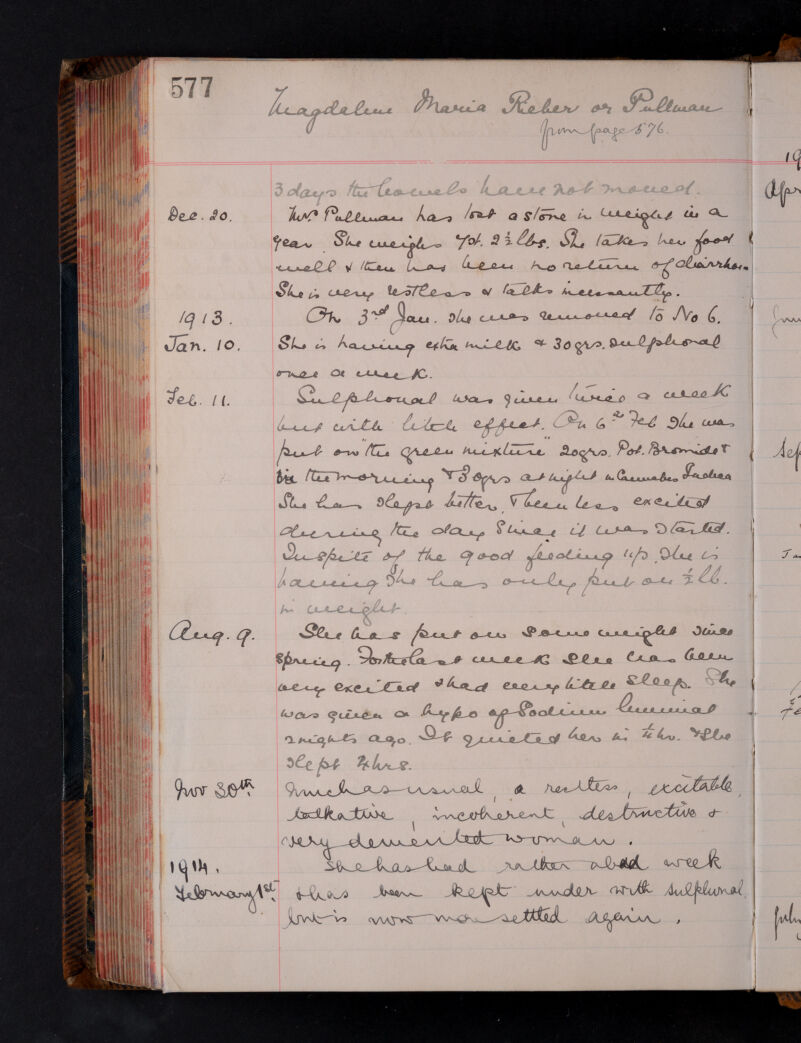 577
Magdalene Maria Reber or Pullman
from page 576.
3 days the bowels have not moved.
Dec. 20. Mrs. Pullman has lost a stone in weight in a
year. She weighs 7st. 2½ lbs. She takes her food
well & there has been no return of diarrhoea
She is very restless & talks incessantly.
1913. On 3rd Jan. she was removed to No 6.
Jan. 10. She is having extra milk & 30 grs. Sulphonal
once a week.
Feb. 11. Sulphonal was given twice a week
but with little effect. On 6th Feb She was
put on "the green mixture" 20grs. Pot. Bromide &
in the morning & 30grs at night Cannabis Indica
She has slept better, & been less excited
during the day since it was started.
In spite of the good feeding up she is
having she has only put on ½ lb.
in weight.
Aug. 9. She has put on some weight since
spring. For the last week she has been
very excited & had very little sleep. She
was given a hypo of Sodium luminal
2 nights ago. It quieted her in ½ hr. & She
slept 7 hrs.
Nov 30th Much as usual, a restless, excitable,
talkative, incoherent, destructive &
very demented woman.
1914. She has had rather a bad week
February 1st & has been kept under with sulphonal
but is now more settled again.
Apr